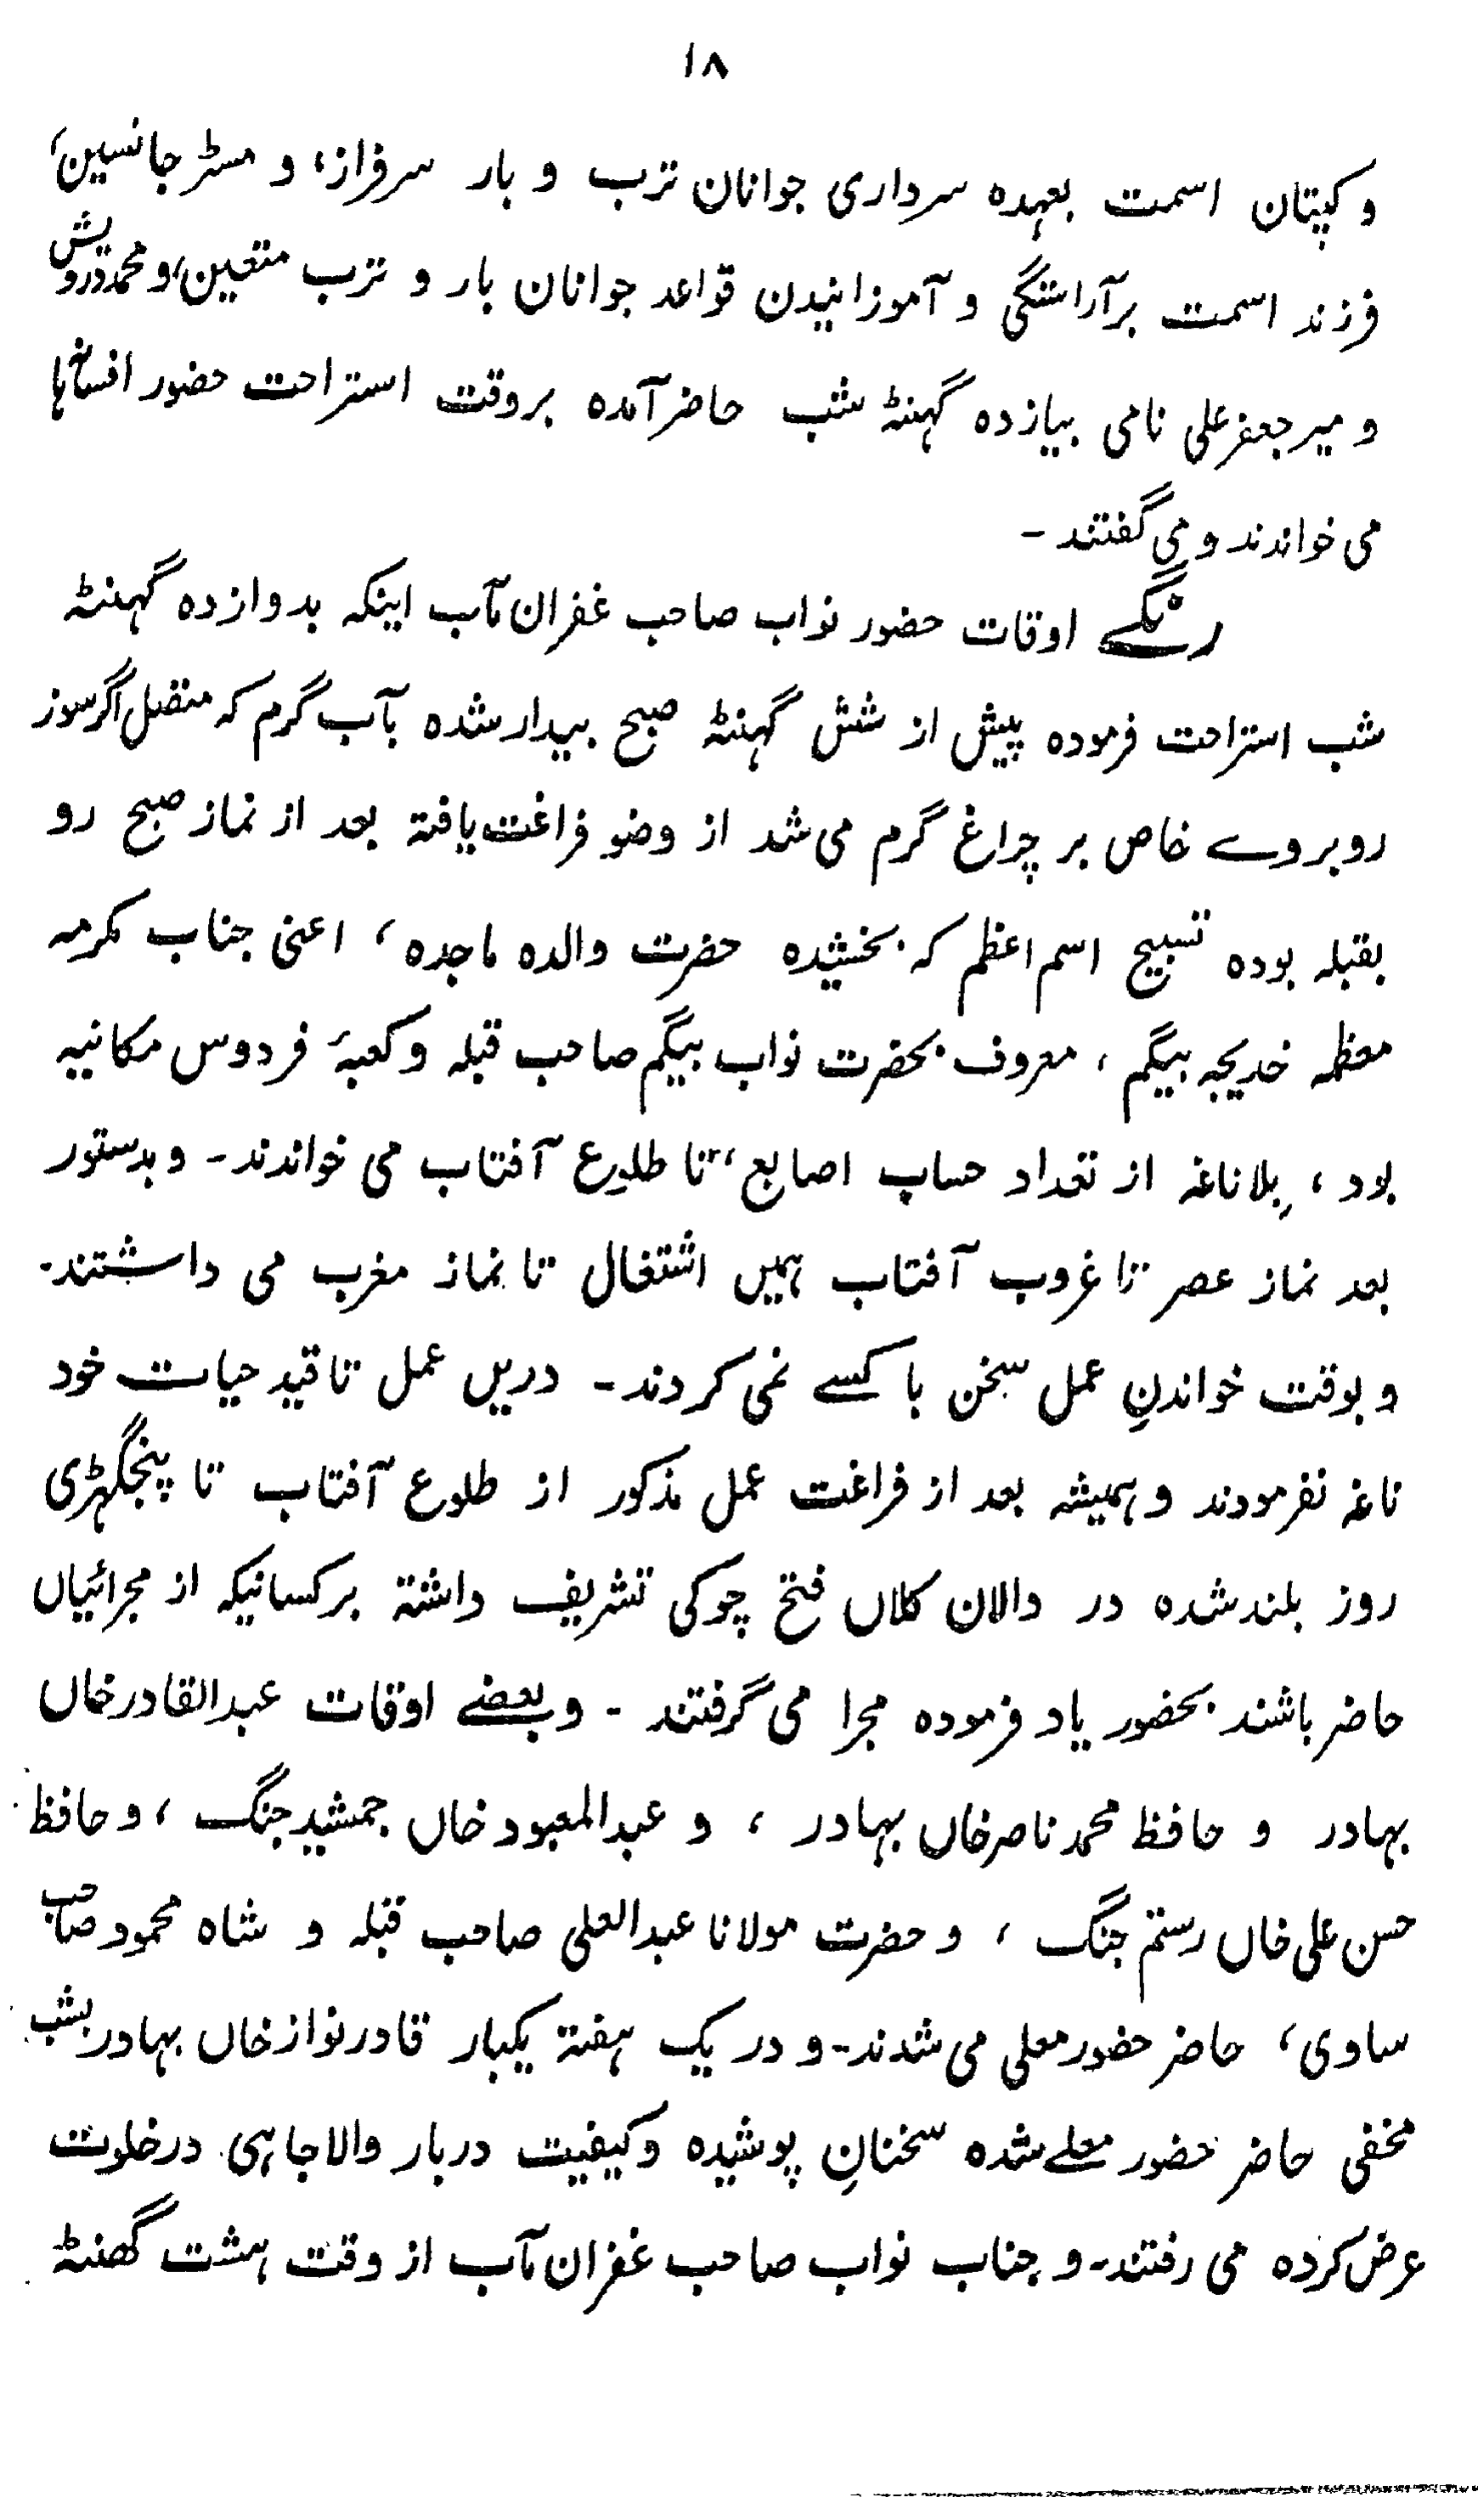 ۱۸
و کپتان اسمت بعہدہ سرداری جوانان ترب و بار سرفراز، و مسٹر جانسین،
فرزند اسمت برآراستگی و آموزانیدن قواعد جوانان بار و ترب متعین، و محمد درویش
و میر جعفر علی نامی بیازدہ گہنٹہ شب حاضر آمدہ بروقت استراحت حضور افسانہا
می خواندند و می گفتند ۔
اوقات حضور نواب صاحب غفران مآب اینکہ بدوازدہ گہنٹہ
شب استراحت فرمودہ پیش از شش گہنٹہ صبح بیدار شدہ بآب گرم کہ متصل اگرسوز
روبروے خاص بر چراغ گرم می شد از وضو فراغت یافتہ بعد از نماز صبح رو
بقبلہ بودہ تسبیح اسم اعظم کہ بخشیدہ حضرت والدہ ماجدہ، اعنی جناب مکرمہ
معظمہ خدیجہ بیگم، معروف بحضرت نواب بیگم صاحب قبلہ و کعبۂ فردوس مکانیہ
بود، بِلا ناغہ از تعداد حساب اصابع، تا طلوع آفتاب می خواندند ۔ و بدستور
بعد نماز عصر تا غروب آفتاب ہمیں اشتغال تا نماز مغرب می داشتند ۔
و بوقت خواندنِ عمل سخن با کسے نمی کردند ۔ دریں عمل تا قید حیات خود
ناغہ نفرمودند و ہمیشہ بعد از فراغت عمل مذکور از طلوع آفتاب تا پنجگہڑی
روز بلند شدہ در دالان کلاں فتح چوکی تشریف داشتہ بر کسانیکہ از مجرائیاں
حاضر باشند بحضور یاد فرمودہ مجرا می گرفتند ۔ و بعضے اوقات عبدالقادر خاں
بہادر و حافظ محمد ناصر خاں بہادر ، و عبدالمعبود خاں جمشید جنگ ، و حافظ
حسن علی خاں رستم جنگ ، و حضرت مولانا عبدالعلی صاحب قبلہ و شاہ محمود صاحب
ساوی، حاضر حضور معلی می شدند ۔ و در یک ہفتہ یکبار قادر نواز خاں بہادر بشب
مخفی حاضر حضور معلے شدہ سخنانِ پوشیدہ و کیفیت دربار والاجاہی در خلوت
عرض کردہ می رفتند ۔ و جناب نواب صاحب غفران مآب از وقت ہشت گھنٹہ